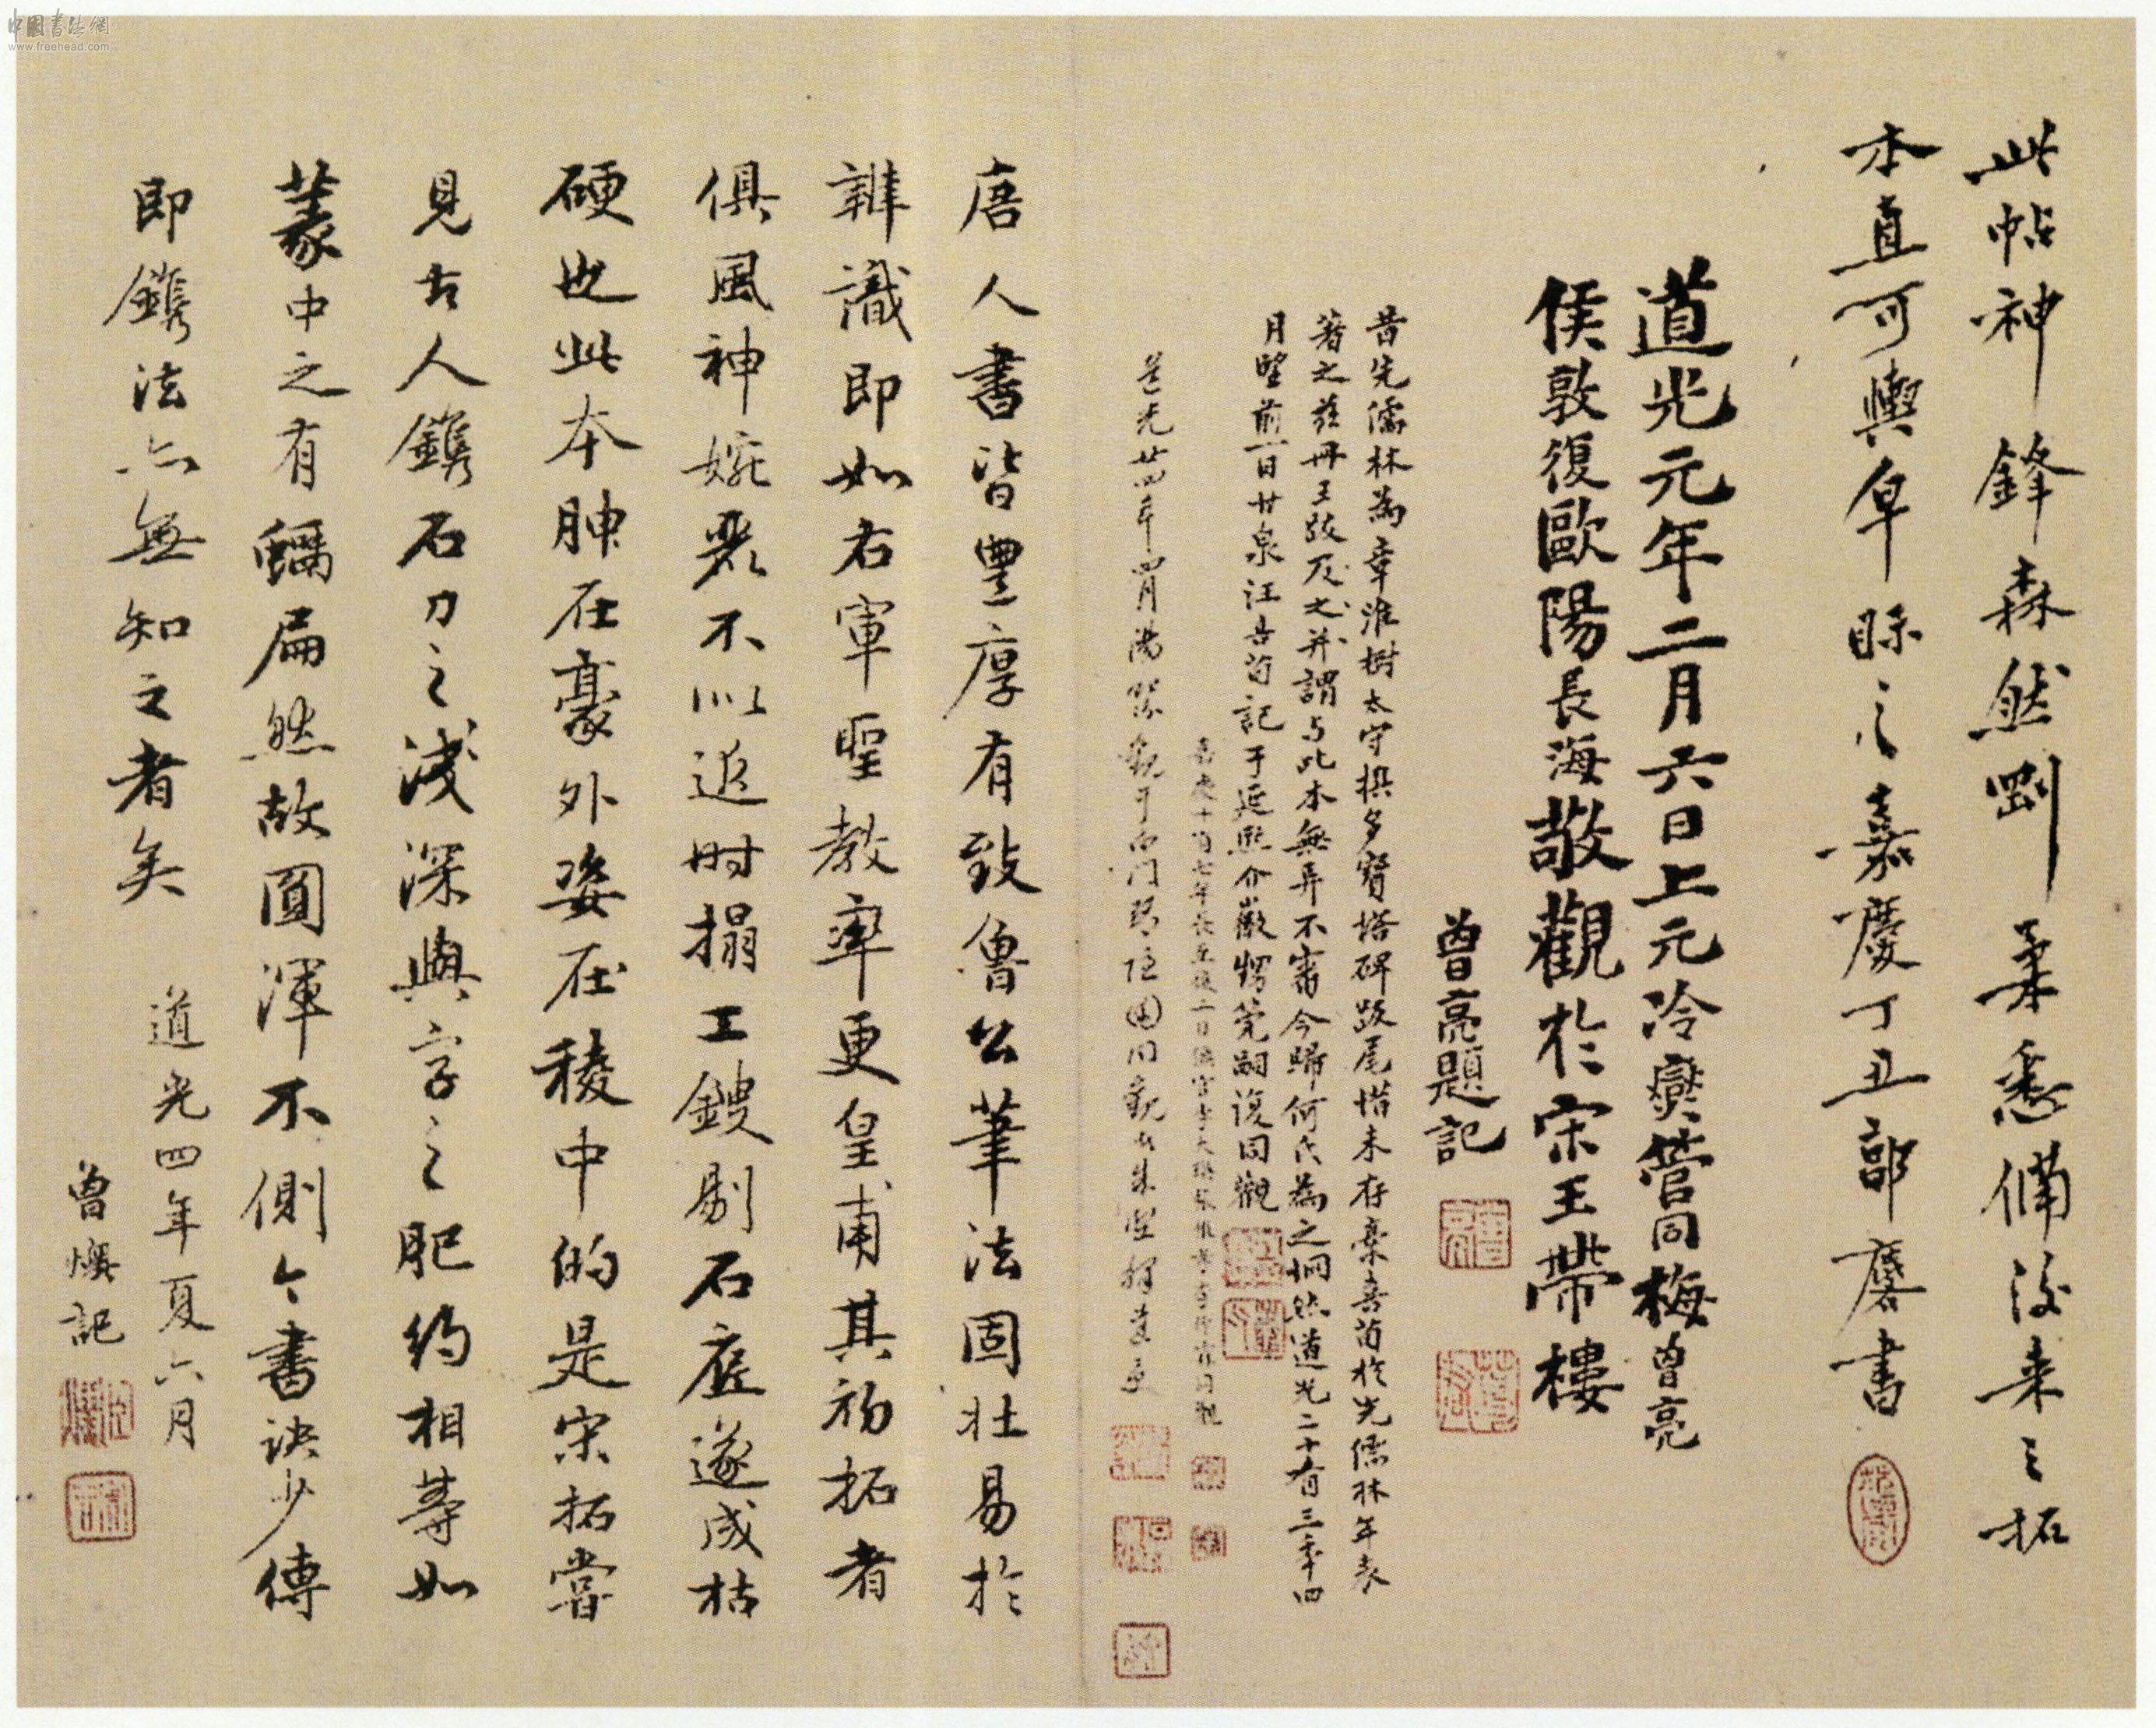 此帖神鋒森然剛柔悉備後來之拓
本直可輿皁眎之嘉慶丁丑郭麐書
道光元年二月六日上元冷爕管同梅曾亮
侯敦復歐陽長海敬觀於宋王帶樓
曾亮題記
昔先儒林為章淮樹太守撰多寶塔碑跋尾惜未存稾喜荀於先儒林年表
著之茲冊王跋及之并謂与此本無異不審今歸何氏為之惘然道光二十有三年四
月朢前一日甘泉汪喜荀記于延熙介嶽甥筦嗣復同觀
嘉慶十有七年
同觀
道光廿四年四月湯貽汾觀于白門
唐人書皆豐厚有致魯公筆法固壯易於
辨識即如右軍聖教率更皇甫其初拓者
俱風神婉麗不似近时搨工鏤剔石底遂成枯
硬也此本腴在豪外姿在稜中的是宋拓嘗
見古人鐫石刀之淺深與字之肥約相等如
篆中之有蠣扁然故圓渾不側今書訣少傳
即鐫法亦無知之者矣
道光四年夏六月
曾燠記
中国书法網
www.freehead.com